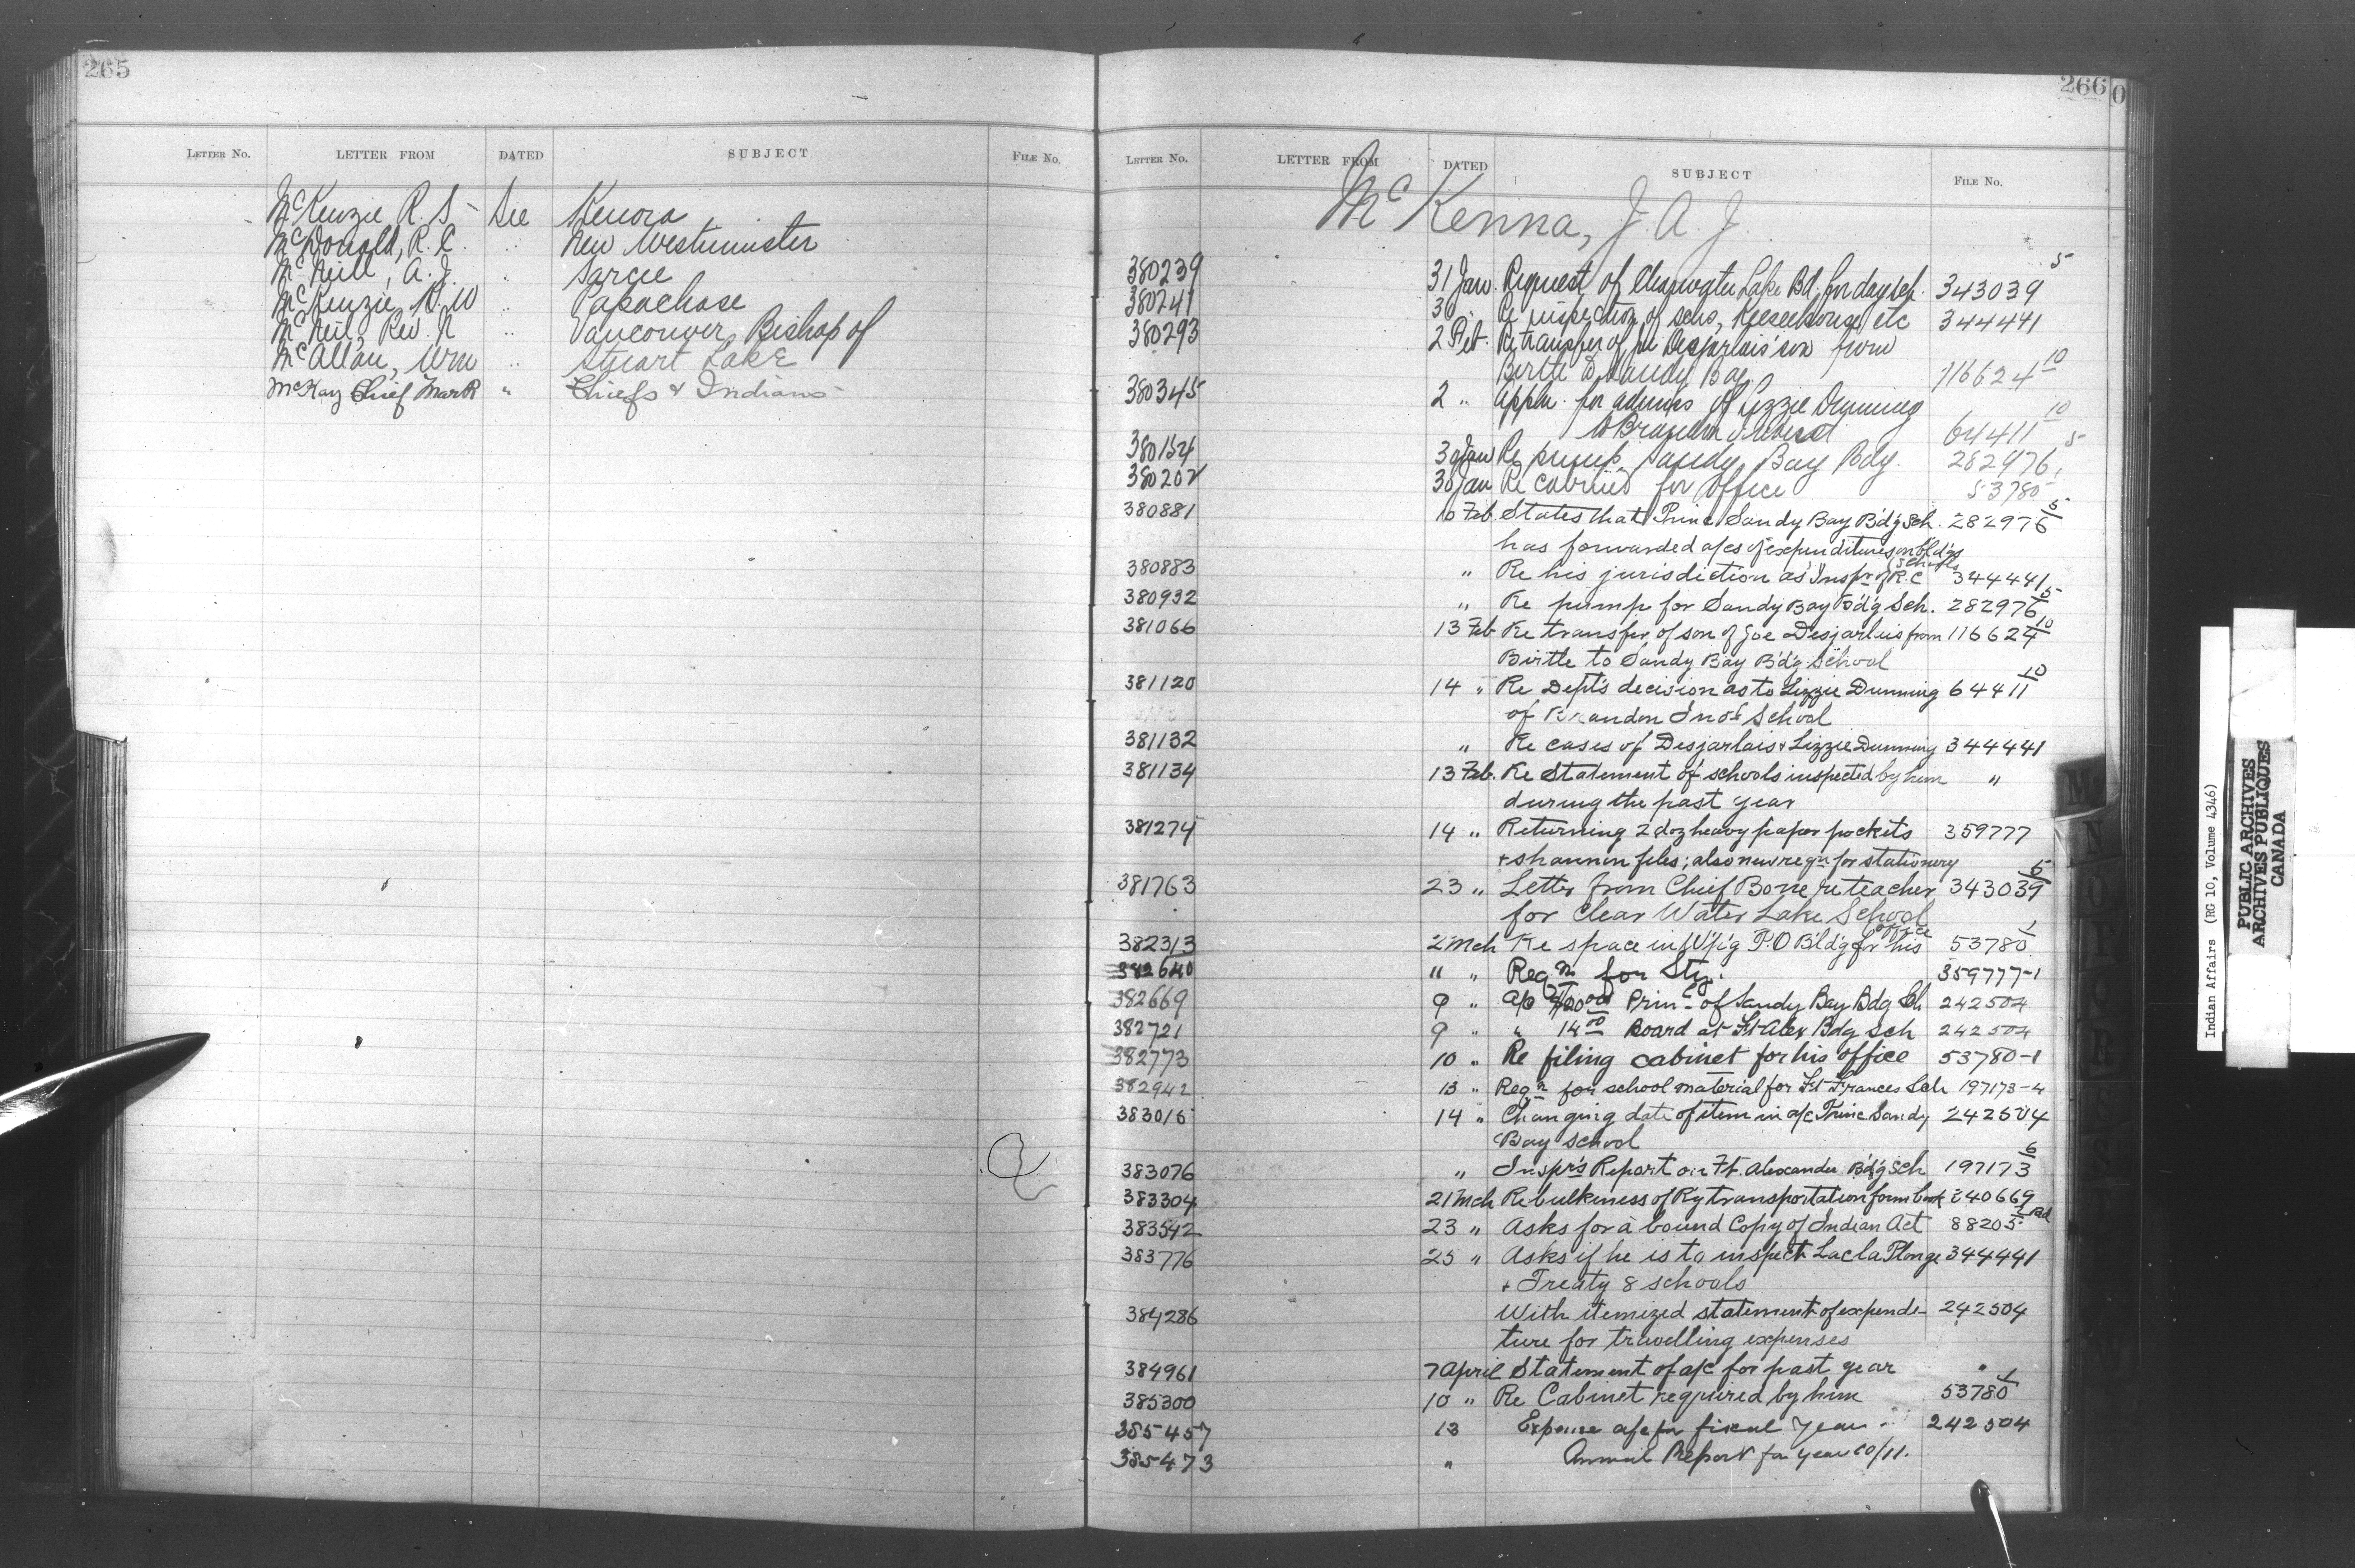 265
LETTER No. LETTER FROM DATED SUBJECT FILE No.
McKenzie R. S - See Kenora
McDonald, R. C. " New Westminster
McNeill, A. J. " Sarcee
McKenzie, K. W " Papachase
McNeil, Rev. N " Vancouver, Bishop of
McAllan, Wm " Stuart Lake
McKay Chief Mark " Chiefs & Indians
266
LETTER No. LETTER FROM DATED SUBJECT FILE No.
McKenna, J. A. J.
380239 31 Jan. Request of Clearwater Lake Bd. for day sch. 343039 5
380241 30 " Re inspection of schs, Keeseekouse etc 344441
380293 2 Feb. Re transfer of Desjarlais' son from
Birtle to Sandy Bay 116624 10
380345 2 " Appln. for admss of Lizzie Dunning
to Brandon 64411 10
380154 30 Jan Re pump Sandy Bay Bdg. 282976 5
380202 30 Jan Re cabinet for office 53780 1
380881 10 Feb. States that Princ Sandy Bay B'd'g Sch. 282976 5
has forwarded a/cs of expenditures on bld'gs
380883 " Re his jurisdiction as Inspr of R.C Schools 344441
380932 " Re pump for Sandy Bay B'd'g Sch. 282976 5
381066 13 Feb Re transfer of son of Joe Desjarlais from 116624 10
Birtle to Sandy Bay B'd'g School
381120 14 " Re Dept's decision as to Lizzie Dunning 64411 10
of Brandon Ind School
381132 " Re cases of Desjarlais & Lizzie Dunning 344441
381134 13 Feb. Re Statement of schools inspected by him "
during the past year
381274 14 " Returning 2 doz heavy paper pockets 359777
& shannon files; also new reqn for stationery
381763 23 " Letter from Chief Bone re teacher 343039 5
for Clear Water Lake School
382313 2 Mch Re space in W'p'g P.O B'ld'g for his office 53780 1
382640 " " Reqn for Sty. 359777-1
382669 9 " a/c Prin- of Sandy Bay Bdg Sch 242504
382721 9 " " 14 00 Board at Ft Alex Bdg Sch 242504
382773 10 " Re filing cabinet for his office 53780-1
382942 13 " Reqn for school material for Ft Frances Sch 197173-4
383015 14 " Changing date of item in a/c Princ. Sandy 242504
Bay School
383076 " Inspr's Report on Ft. Alexander B'd'g Sch 197173 6
383304 21 Mch Re bulkiness of Ry transportation form book 240669
383542 23 " Asks for a bound Copy of Indian Act 88205
383776 25 " Asks if he is to inspect Lac la Plonge 344441
& Treaty 8 schools
384286 With itemized statement of expendi- 242504
ture for travelling expenses
384961 7 April Statement of a/c for past year "
385300 10 " Re Cabinet required by him 53780 1
385457 13 Expense a/c for fiscal year 242504
385473 " Annual Report for year 10/11.
M
N
Indian Affairs (RG 10, Volume 4346)
PUBLIC ARCHIVES
ARCHIVES PUBLIQUES
CANADA